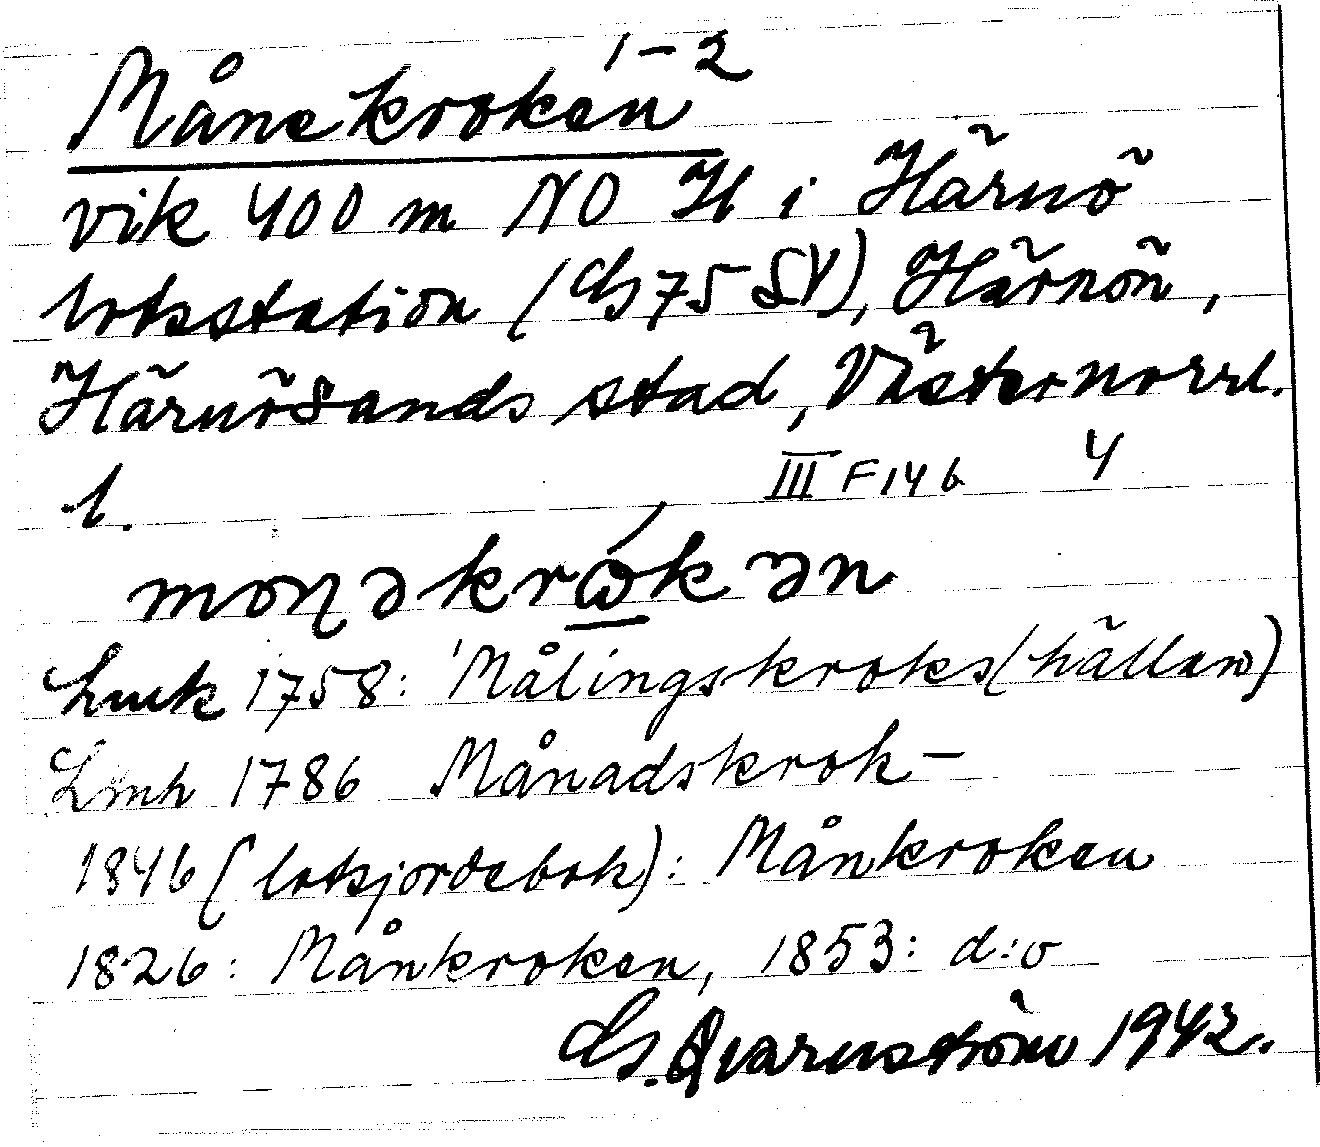 Månekroken 1-2
vik 400 m NO H i Härnö
lotsstation (Gs 75 SV), Härnön,
Härnösands stad, Västernorrl.
l.
III F 14 b 4
monəkrώkən
1758: 'Målingskroks(hällan)
1786 Månadskrok-
1846 (lotsjordebok): Månkroken
1826: Månkroken, 1853: d:o
G. Qvarnström 1942.